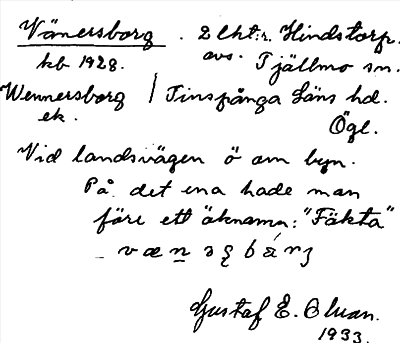 Vänersborg . 2 lht:r. Hindstorp.
kb 1928. avs. Tjällmo sn.
Wennersborg / Finspånga läns hd.
ek. Ögl.
Vid landsvägen ö om byn.
På det ena hade man
förr ett öknamn: "Fäkta"
Gustaf E. Bluan.
1933.